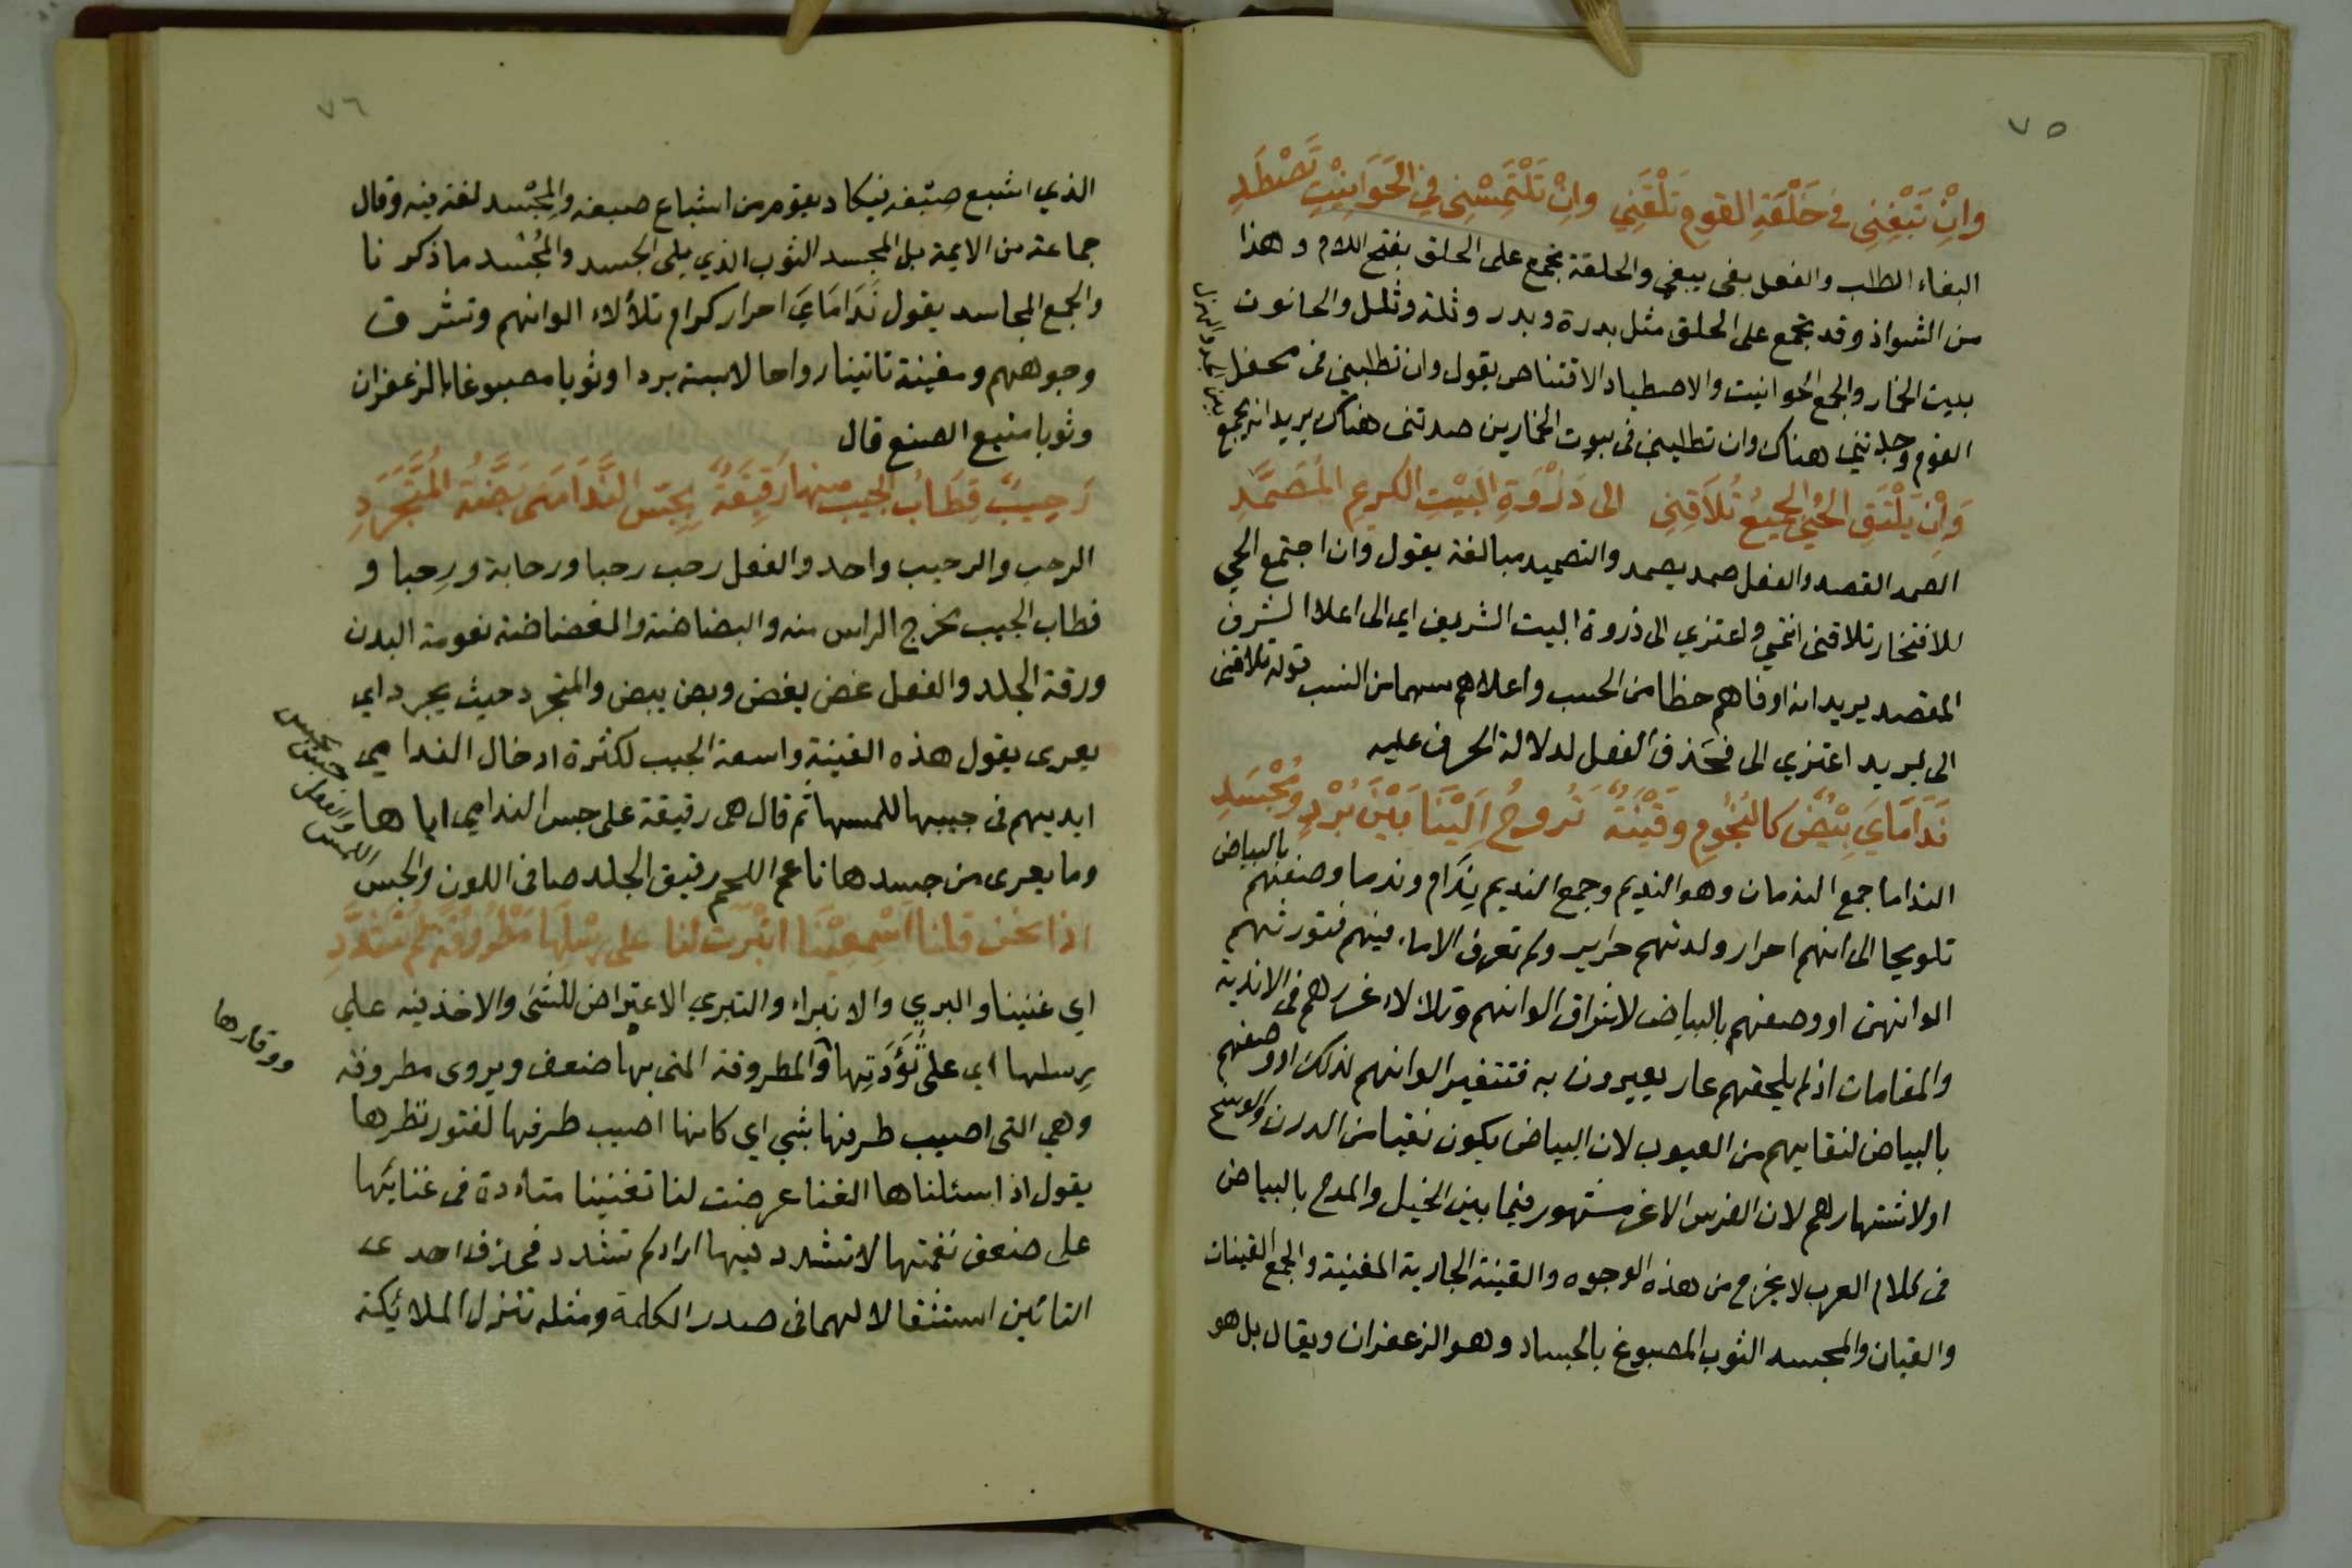 ٧٥
وَاِنْ تَبْغِنِى فِى حَلْقَةِ القومِ تَلْقَنِي وَاِنْ تَلْتَمِسْنِى فِي الْحَوَانِيْتِ تَصْطَدِ
البغاء الطلب والفعل بغى يبغي والحلقة تجمع على الحلق بفتح اللام وهذا
من الشواذ وقد تجمع على الحلق مثل بدرة وبدر وثلة وثلل والحانوت
بيت الخمار والجمع الحوانيت والاصطياد الاقتناص يقول وان تطلبني فى محفل
القوم وجدتني هناك وان تطلبني فى بيوت الخمارين صدتنى هناك يريد انه يجمع
بين الجد والهزل
وَاِنْ يَلْتَقِ الْحَيُّ الْجَمِيْعُ تُلَاقِنِى الى ذَرْوَةِ الْبَيْتِ الكريمِ الْمُصَمَّدِ
الصمد القصد والفعل صمد يصمد والتصميد مبالغة يقول وان اجتمع الحي
للافتخار تلاقنى انتمي واعتزي الى ذروة البيت الشريف اي الى اعلا الشرف
المقصد يريد انه اوفاهم حظا من الحسب واعلاهم سهما من النسب قوله تلاقنى
الى يريد اعتزي الى فحذف الفعل لدلالة الحرف عليه
نَدَامَايَ بِيْضٌ كالنُجُومِ وقَيْنَةٌ تَرُوحُ اِلَيْنَا بَيْنَ بُرْدٍ ومُجْسَدِ
النداما جمع الندمان وهو النديم وجمع النديم نِدَام وندما وصفهم بالبياض
تلويحا الى انهم احرار ولدتهم حراير ولم تعرف الاماء فيهم فتورثهم
الوانهن او وصفهم بالبياض لاشراق الوانهم وتلالاء غررهم فى الاندية
والمقامات اذ لم يلحقهم عار يعيرون به فتتغير الوانهم لذلك او وصفهم
بالبياض لنقايهم من العيوب لان البياض يكون نقيا من الدرن والوسخ
او لاشتهارهم لان الفرس الاغر مشهور فيما بين الخيل والمدح بالبياض
فى كلام العرب لا يخرج من هذه الوجوه والقينة الجارية المغنية والجمع القينات
والقيان والمجسد الثوب المصبوغ بالجساد وهو الزعفران ويقال بل هو
٧٦
الذي اشبع صبغه فيكاد يقوم من اشباع صبغه والمِجْسد لغة فيه وقال
جماعة من الايمة بل المجسد الثوب الذي يلى الجسد والمُجْسد ما ذكرنا
والجمع المجاسد يقول نَدَامَايَ احرار كرام تلألاء الوانهم وتشرق
وجوههم ومغنية تاتينا رواحا لابسة بردا او ثوبا مصبوغا بالزعفران
وثوبا مشبع الصبغ قال
رَحِيبٌ قِطَابُ الجيبِ منها رَقِيقَةٌ بِجَسِّ النَّدَامَى بَضَّةُ المُتَجَرَّدِ
الرحب والرحيب واحد والفعل رحب رحبا ورحابة ورِحبا و
قطاب الجيب مخرج الراس منه والبضاضة والغضاضة نعومة البدن
ورقة الجلد والفعل غض يغض وبض يبض والمتجرد حيث يجرد اي
يعرى يقول هذه القينة واسعة الجيب لكثرة ادخال الندامي
ايديهم فى جيبها للمسها ثم قال هى رقيقة على جس الندامي اياها
وما يعرى من جسدها ناعم اللحم رقيق الجلد صافى اللون والجس
اللمس والفعل جس يجس
اذا نحن قلنا اَسْمِعِيْنَا انْبَرَت لنا على رِسْلِهَا مَطْرُوْقَةً لم تَشَدَّدِ
اي غنينا والبري والانبراء والتبري الاعتراض للشى والاخذ فيه على
رِسلها اي على تُؤَدَتِها والمطروقة التى بها ضعف ويروى مطروفة
ووقارها
وهي التى اصيب طرفها بشي اي كانها اصيب طرفها لفتور نظرها
يقول اذا سئلناها الغنا عرضت لنا تغنينا متأدة فى غنائها
على ضعف نغمتها لا تتشدد فيها اراد لم تتشدد فحذف احدى
التائين استثقالا لهما فى صدر الكلمة ومثله تنزل الملائكة